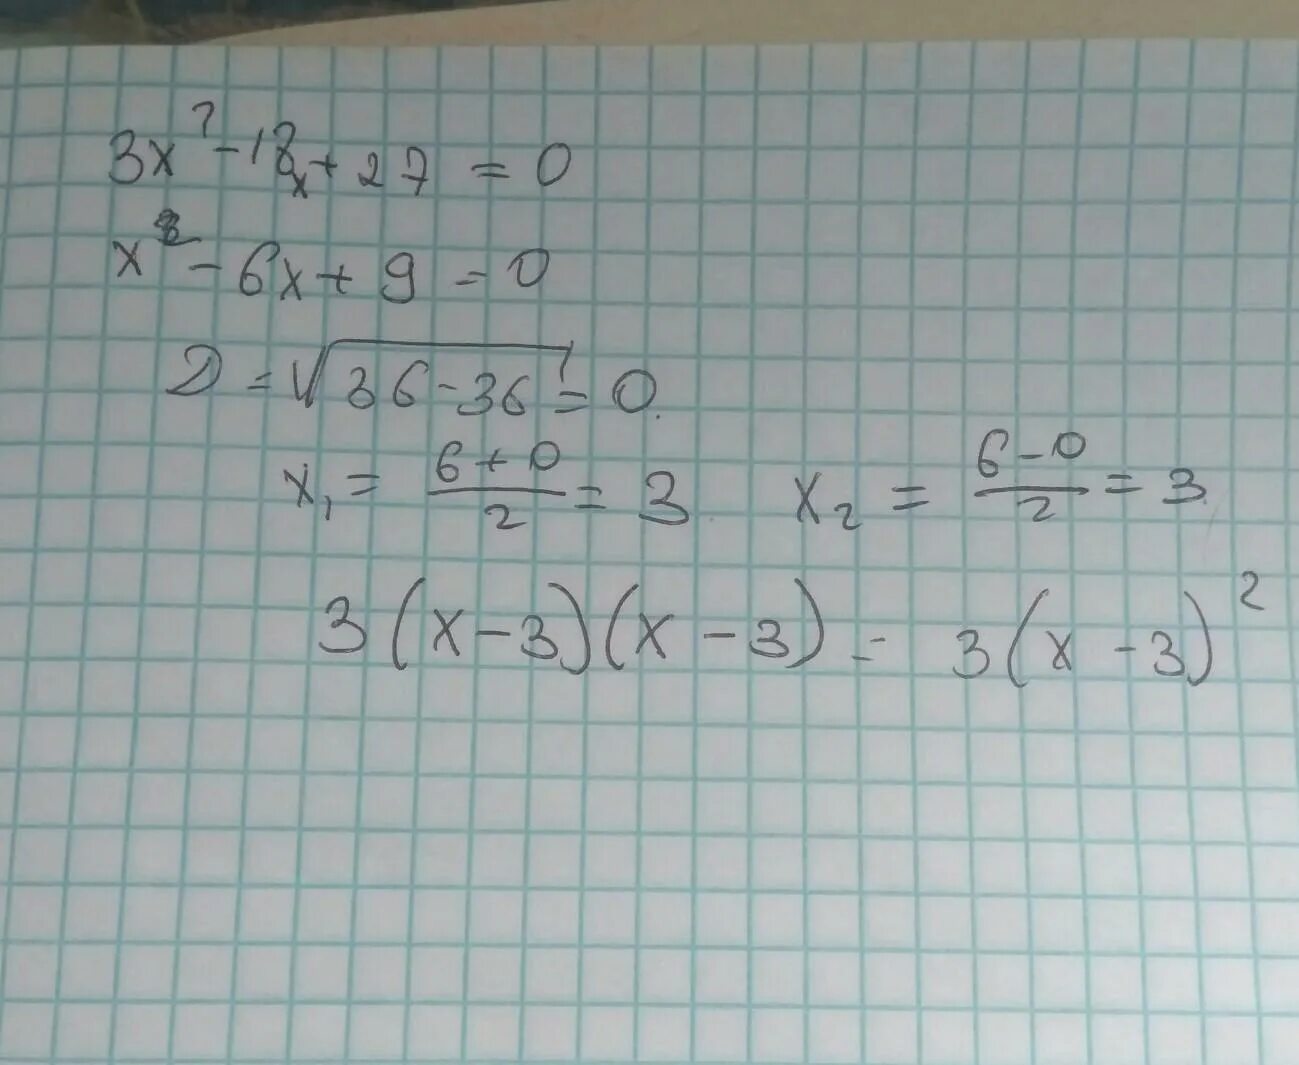 3x² - 18x + 27 = 0
x² - 6x + 9 = 0
D = √36-36 = 0.
x₁ = 6+0/2 = 3 x₂ = 6-0/2 = 3
3(x-3)(x-3) = 3(x-3)²